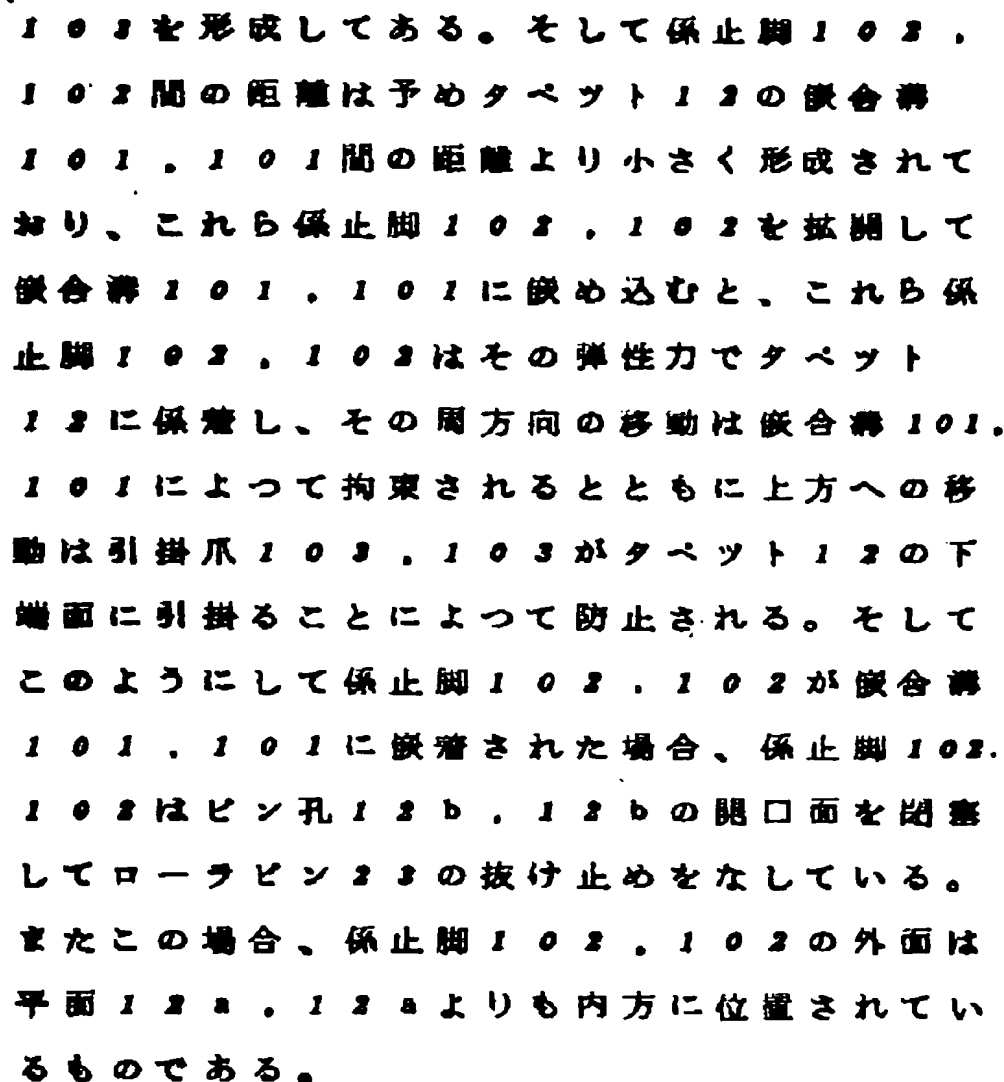 103を形成してある。そして係止脚102,
102間の距離は予めタペツト12の嵌合溝
101,101間の距離より小さく形成されて
おり、これら係止脚102,102を拡開して
嵌合溝101,101に嵌め込むと、これら係
止脚102,102はその弾性力でタペツト
12に係着し、その周方向の移動は嵌合溝101,
101によつて拘束されるとともに上方への移
動は引掛爪103,103がタペツト12の下
端面に引掛ることによつて防止される。そして
このようにして係止脚102,102が嵌合溝
101,101に嵌着された場合、係止脚102,
102はピン孔12b,12bの開口面を閉塞
してローラピン23の抜け止めをなしている。
またこの場合、係止脚102,102の外面は
平面12a,12aよりも内方に位置されてい
るものである。